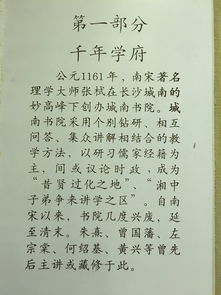 第一部分
千年学府
公元1161年，南宋著名
理学大师张栻在长沙城南的
妙高峰下创办城南书院。城
南书院采用个别钻研、相互
问答、集众讲解相结合的教
学方法，以研习儒家经籍为
主，间或议论时政，成为
“昔贤过化之地”、“湘中
子弟争来讲学之区”。自南
宋以来，书院几度兴废，延
至清末。朱熹、曾国藩、左
宗棠、何绍基、黄兴等曾先
后主讲或藏修于此。